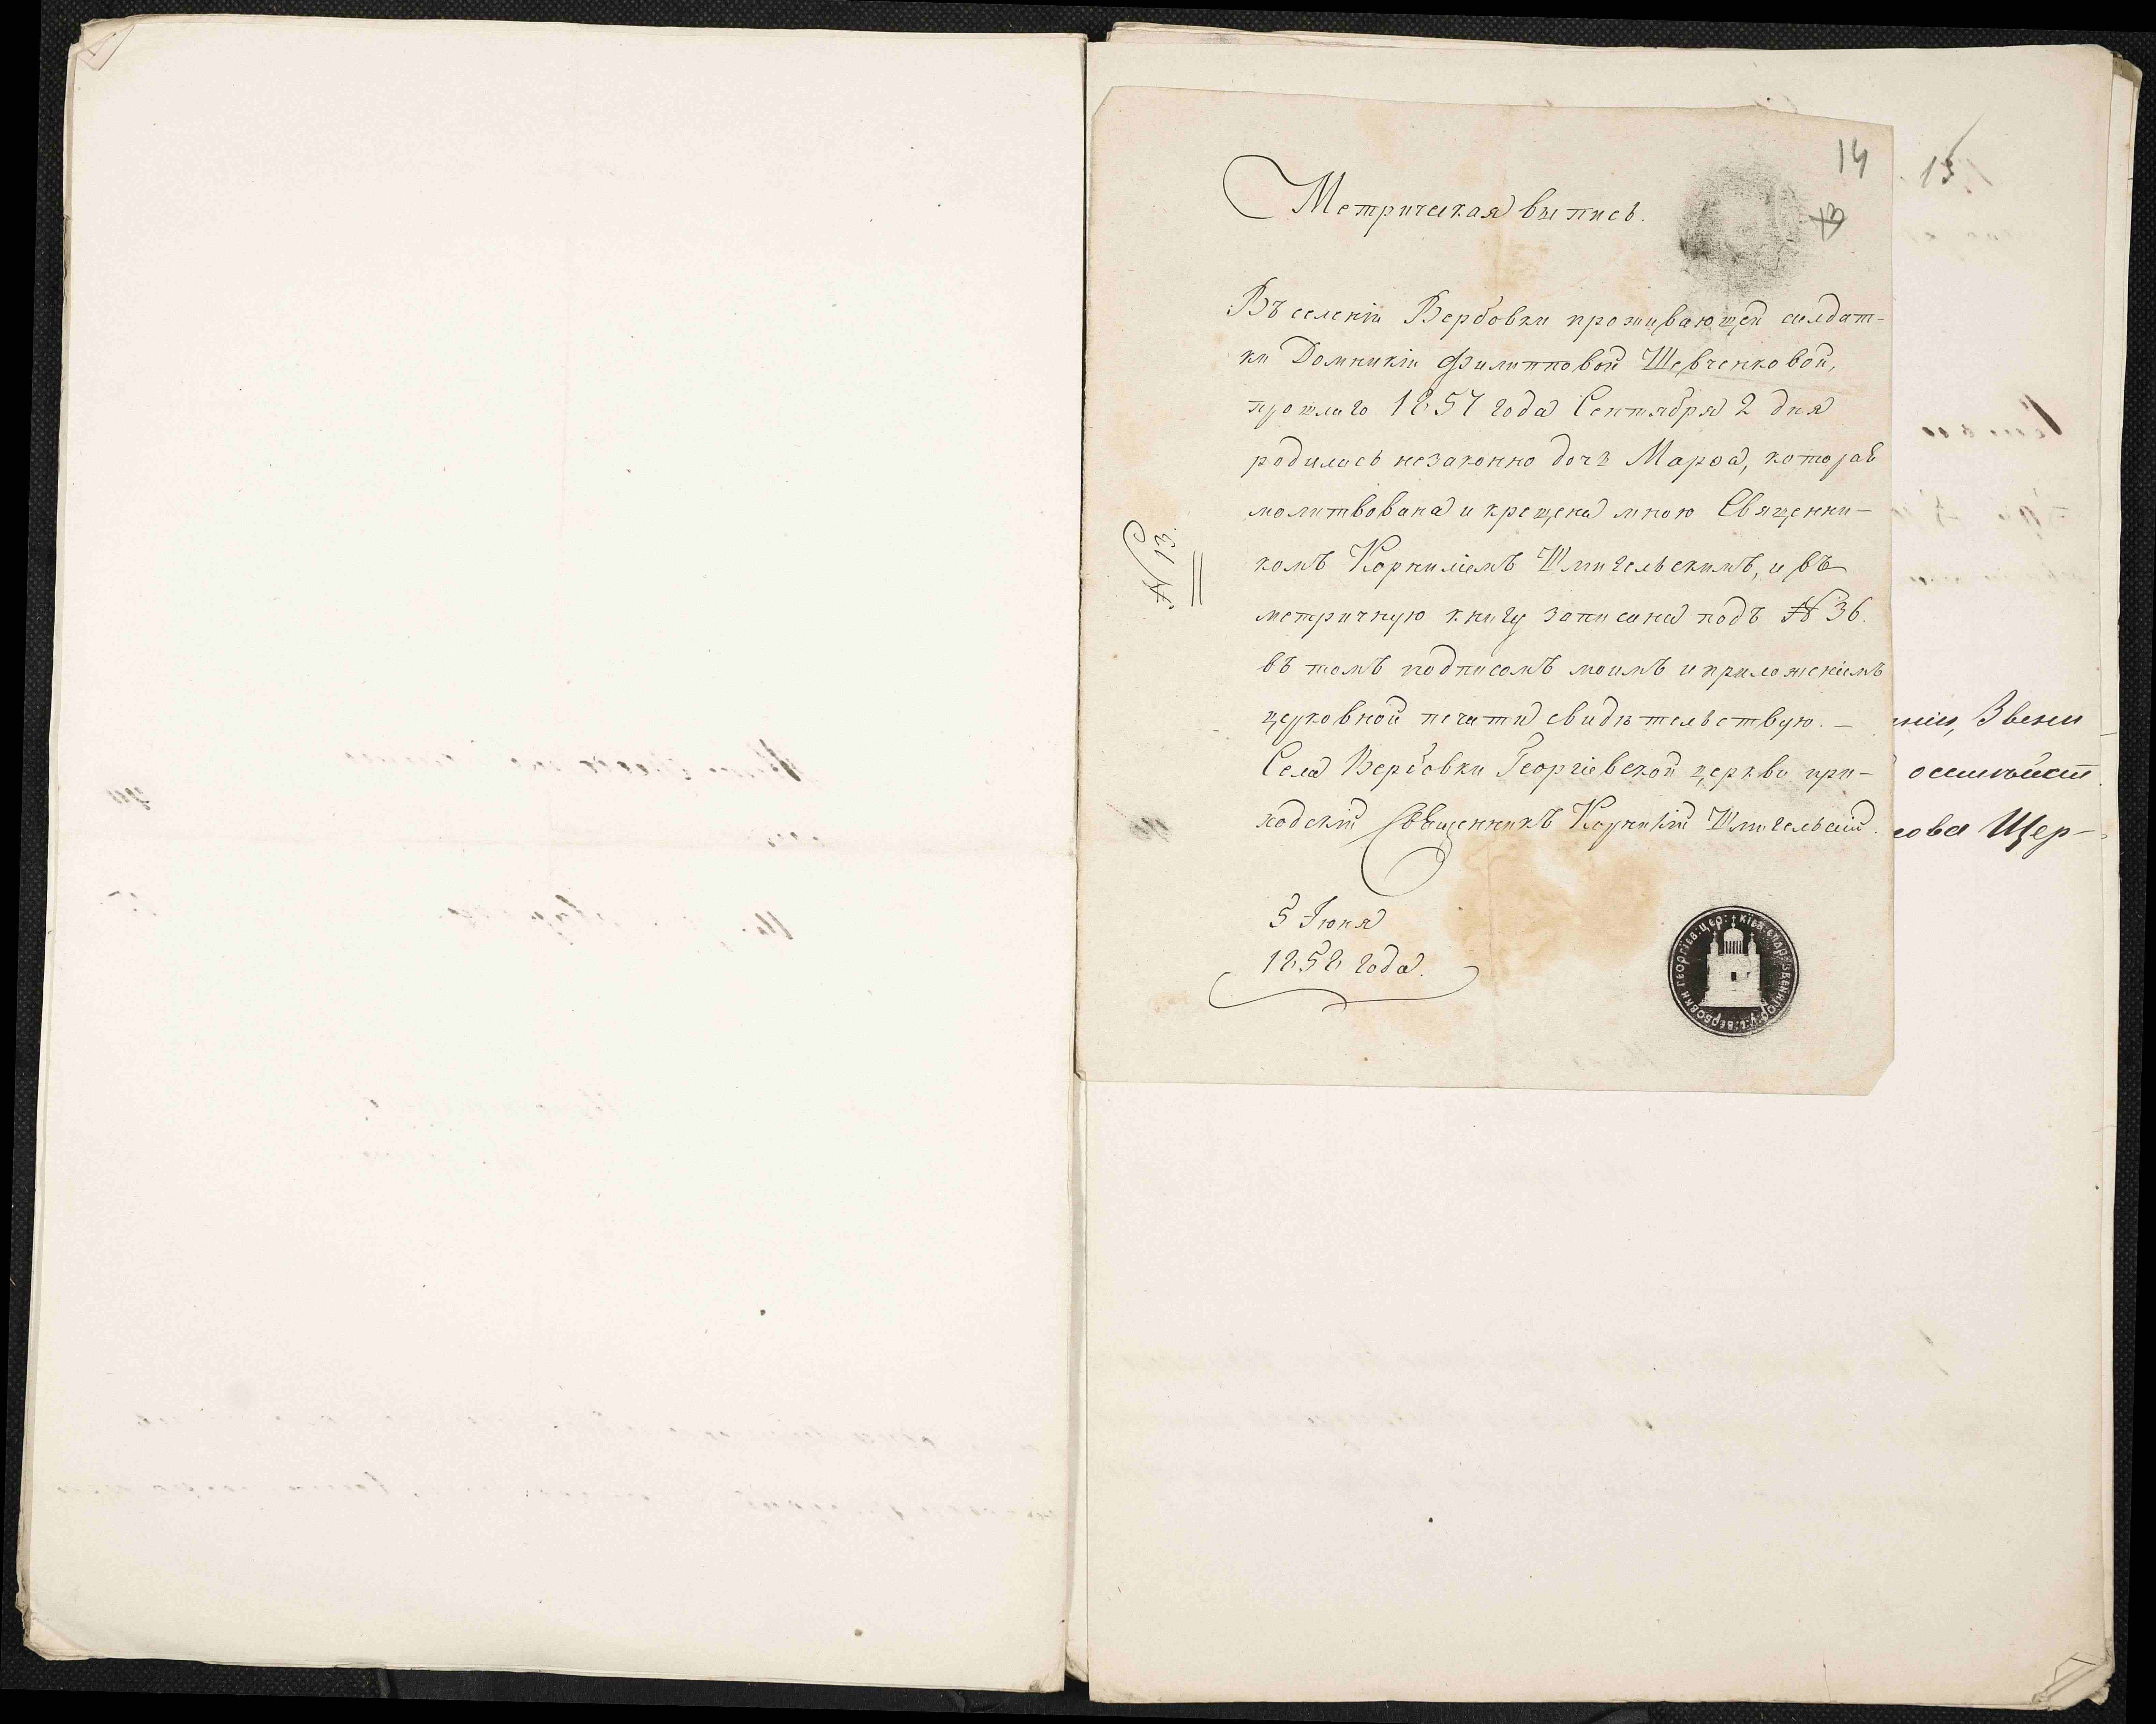 14
13
13
Метрическая выпись.
Въ селеніи Вербовки проживающей салдат-
ки Домникіи Филипповой Шевченковой,
прошлаго 1857 года Сентября 2 дня
родилась незаконно дочь Марѳа, которая
молитвована и крещена мною Священни-
комъ Корниліемъ Шмигельскимъ, и въ
метричную книгу записана подъ № 36.
въ томъ подписомъ моимъ и приложеніемъ
церковной печати свидѣтельствую. —
Села Вербовки Георгіевской церкви при-
ходскій Священникъ Корнилій Шмигельскій.
5 Іюня
1858 года.
№ 13.
Звени
Щер-